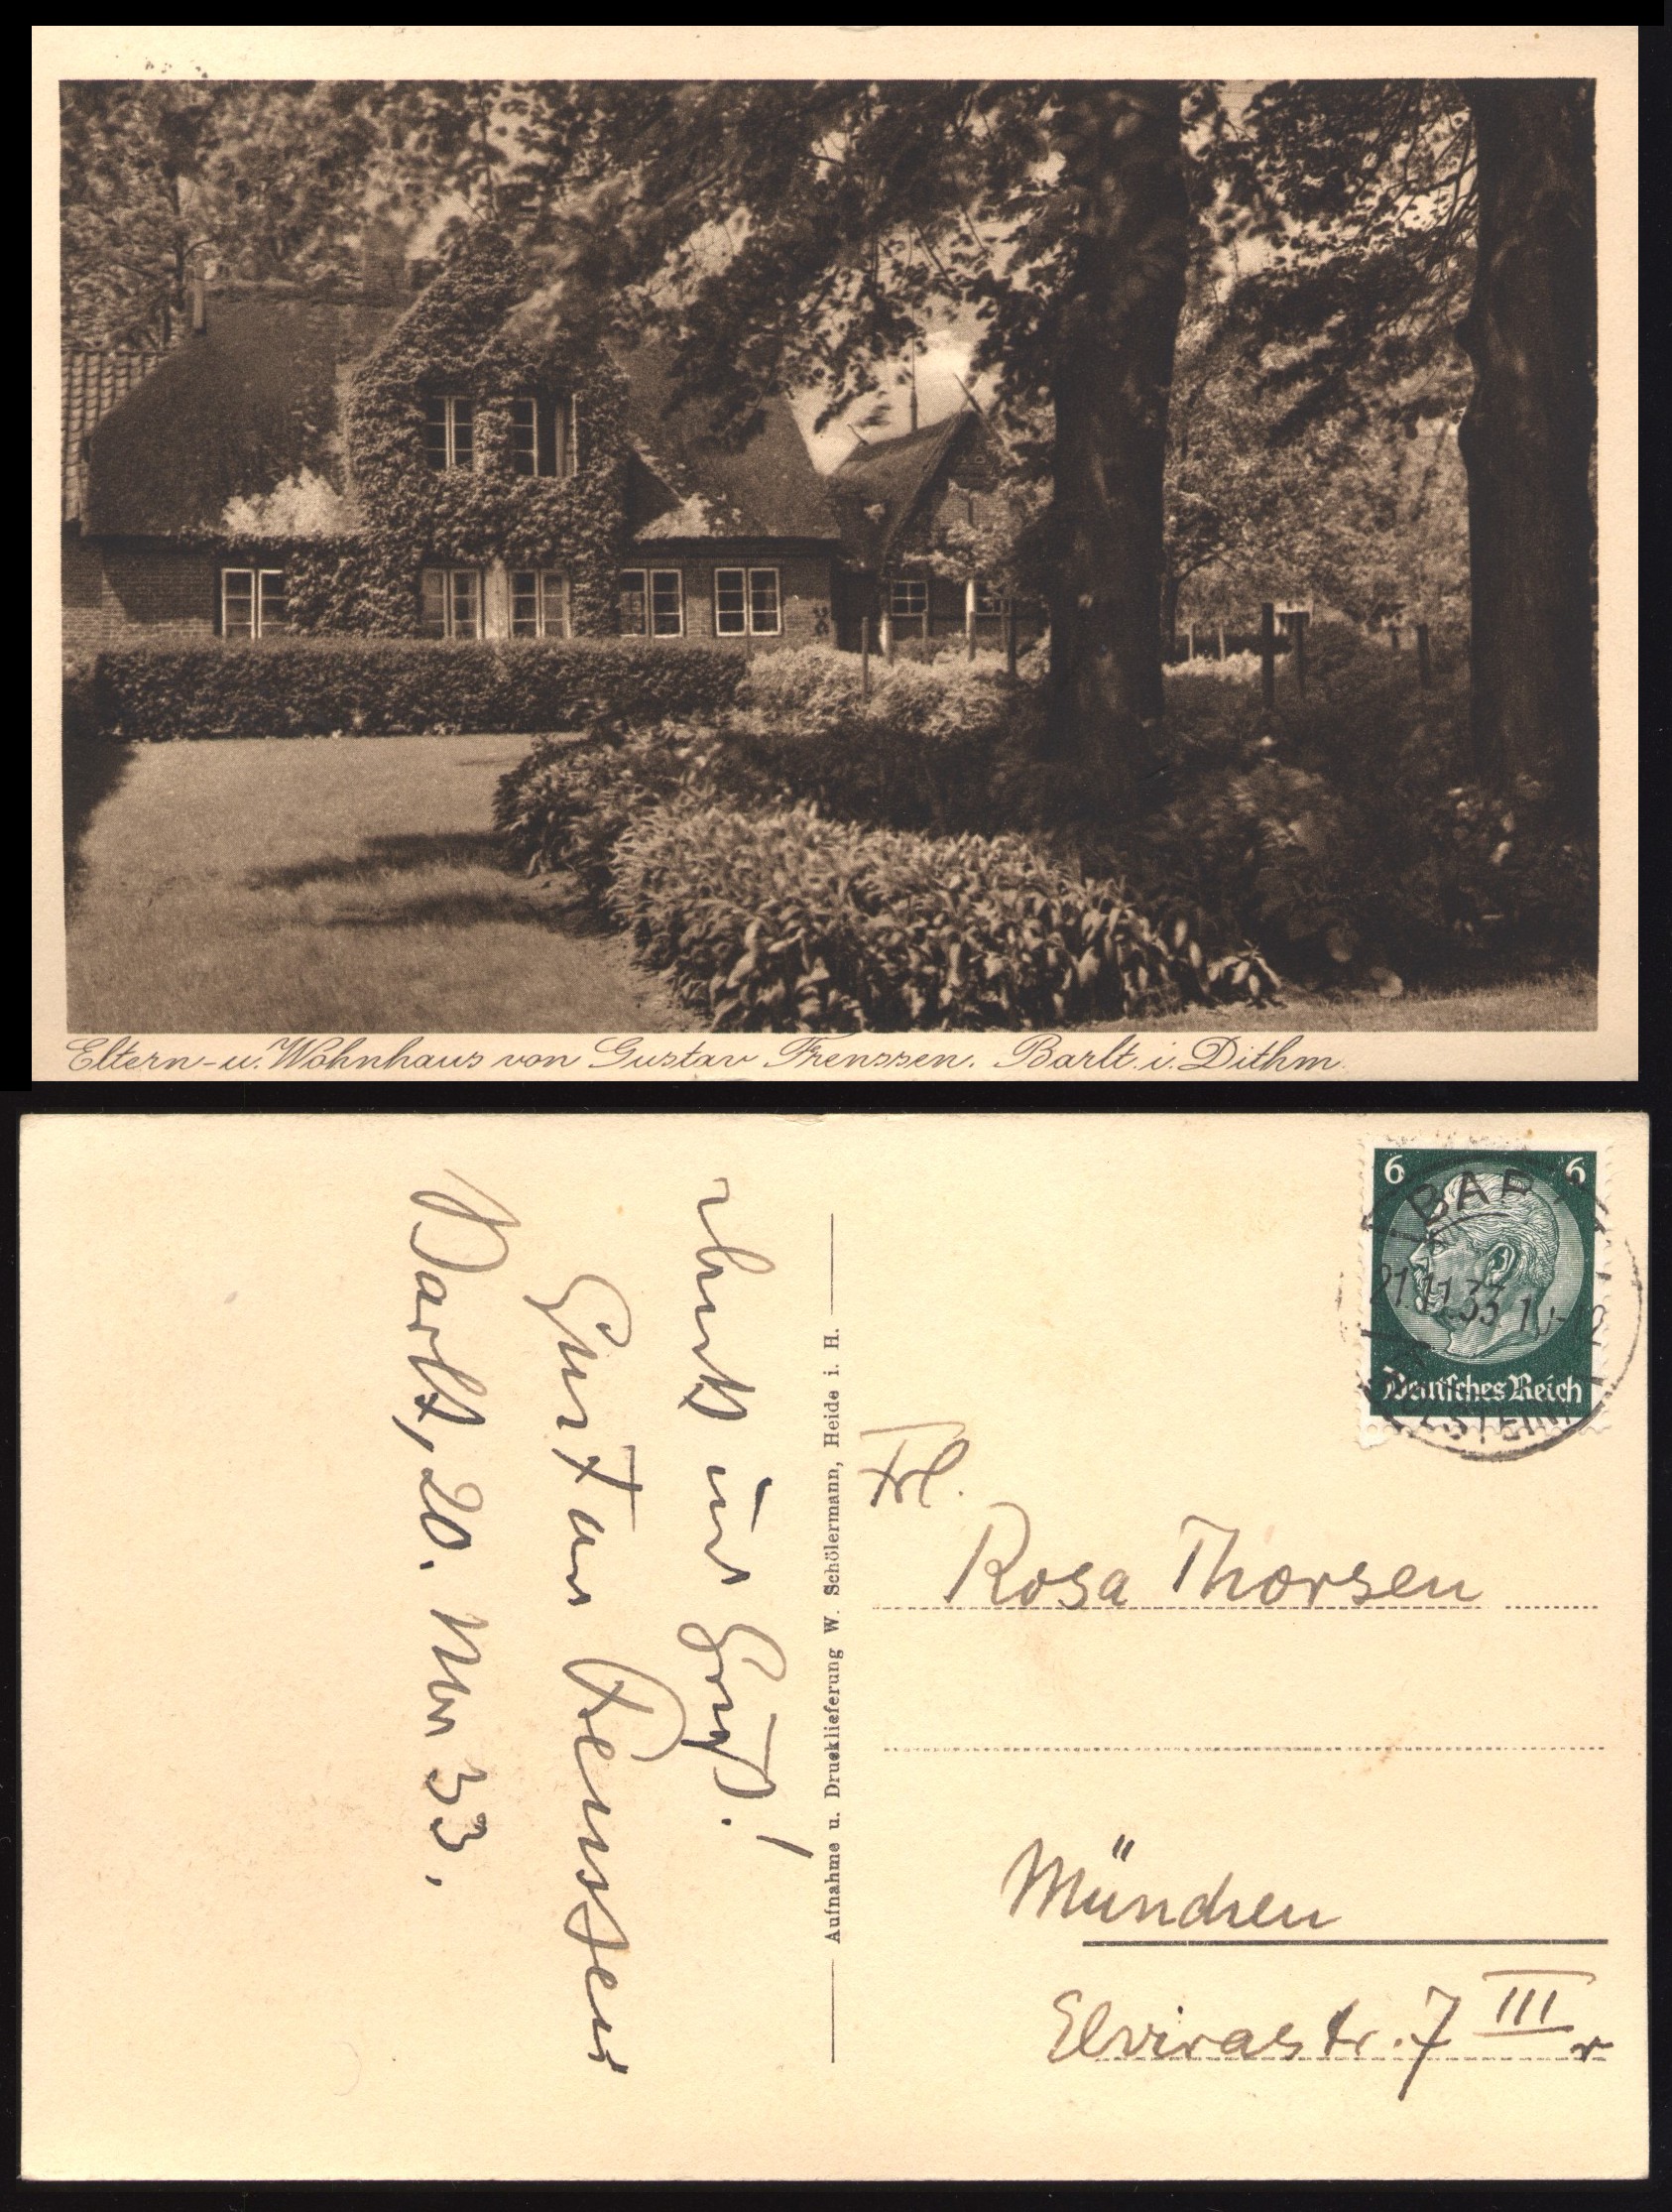 Eltern-u. Wohnhaus von Gustav Frenssen. Barlt. i. Dithm.
6 6
BAR
21.11.33.10-
Deutsches Reich
HOLSTEIN
Aufnahme u. Drucklieferung W. Schölermann, Heide i. H.
Frl.
Rosa Thorsen
München
Elvirastr. 7 III r
und Gruß!
Gustav Frenssen
Barlt, 20. Nov 33.